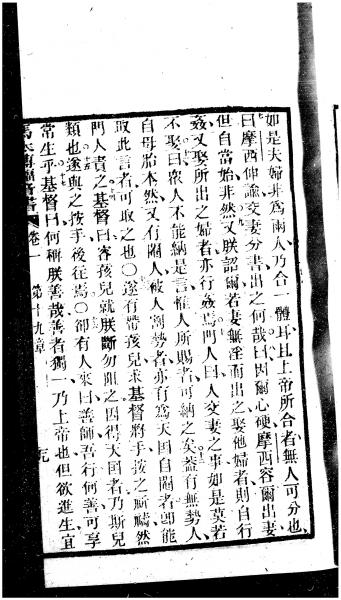 如是夫婦非爲兩人乃合一體耳且上帝所合者無人可分也
曰摩西伸諭交妻分書出之何哉曰因爾心硬摩西容爾出妻
但自當始非然又朕詔爾若妻無淫而出之娶他婦者則自行
姦又娶所出之婦者亦行姦焉門人曰人交妻之事如是莫若
不娶曰衆人不能納是言惟人所賜者可納之矣蓋有無勢人
自母胎本然又有閹人被人割勢者亦有爲天國自閹者卽能
取此言者可取之也〇遂有帶孩兒求基督將手按之祈禱然
門人責之基督曰容孩兒就朕斷勿阻之因得天國者乃斯兒
類也遂與之按手後往焉〇卻有人來曰善師吾行何善可享
常生乎基督曰何稱朕善哉善者獨一乃上帝也但欲進生宜
卷一 第十九章